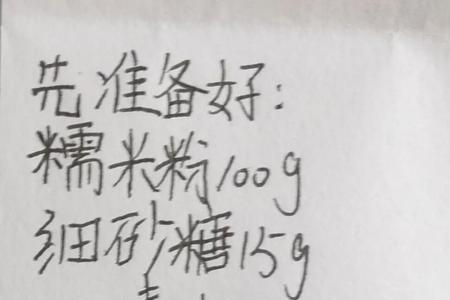 先准备好:
糯米粉100g
细砂糖15g